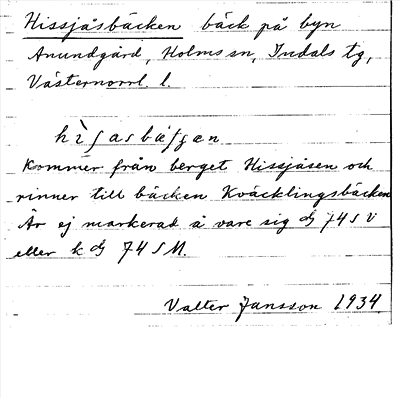 Hissjåsbäcken bäck på byn
Anundgård, Holms sn, Indals tg,
Västernorrl. l.
Kommer från berget Hissjåsen och
rinner till bäcken Kväcklingsbäcken
Är ej markerad å vare sig 74 S V
eller k 74 S M.
Valter Jansson 1934